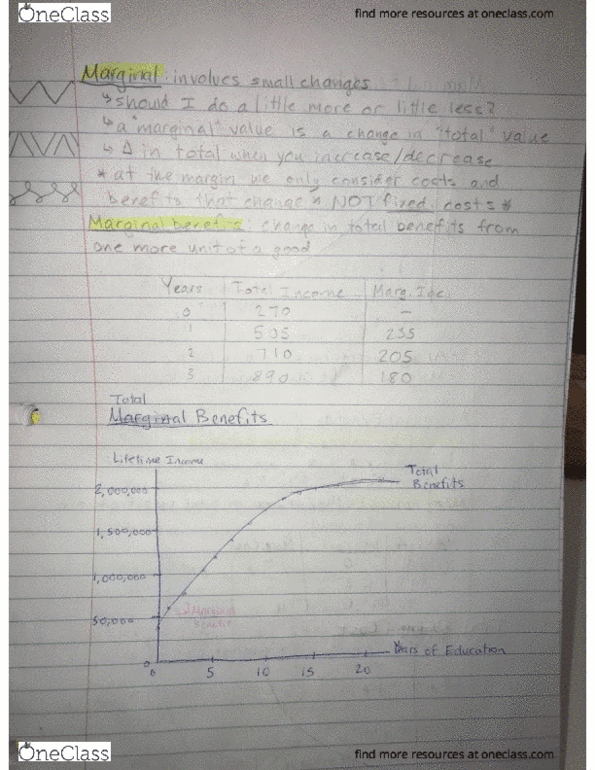 OneClass
find more resources at oneclass.com
Marginal: involves small changes
↳should I do a little more or little less?
↳a "marginal" value is a change in "total" value
↳ Δ in total when you increase/decrease
* at the margin we only consider costs and
benefits that change * NOT fixed costs *
Marginal benefits: change in total benefits from
one more unit of a good
Years Total Income Marg. Inc.
0 270 —
1 505 235
2 710 205
3 890 180
Total
Marginal Benefits
Lifetime Income
2,000,000
1,500,000
1,000,000
50,000
0
Total
Benefits
Marginal
Benefit
Years of Education
0 5 10 15 20
OneClass
find more resources at oneclass.com